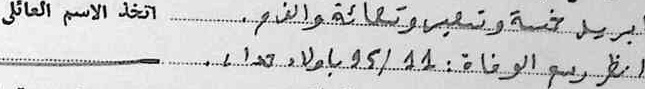 ابريل خمسة وتسعين وتسعمائة والف م. اتخذ الاسم العائلي
انظر رسم الوفاة: 11/95 باولاد